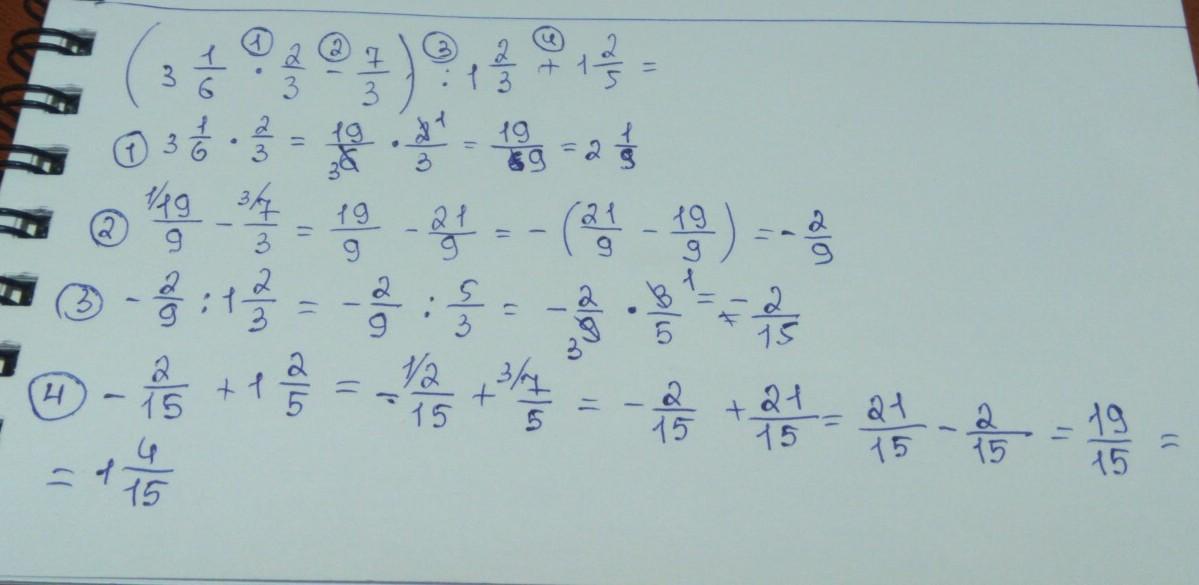 (3 1/6 · 2/3 - 7/3) : 1 2/3 + 1 2/5 =
① ② ③ ④
① 3 1/6 · 2/3 = 19/6 3 · 2/3 1 = 19/9 = 2 1/9
② 1/ 19/9 - 3/ 7/3 = 19/9 - 21/9 = - (21/9 - 19/9) = - 2/9
③ - 2/9 : 1 2/3 = - 2/9 : 5/3 = - 2/9 3 · 3/5 1 = - 2/15
④ - 2/15 + 1 2/5 = - 1/ 2/15 + 3/ 7/5 = - 2/15 + 21/15 = 21/15 - 2/15 = 19/15 =
= 1 4/15